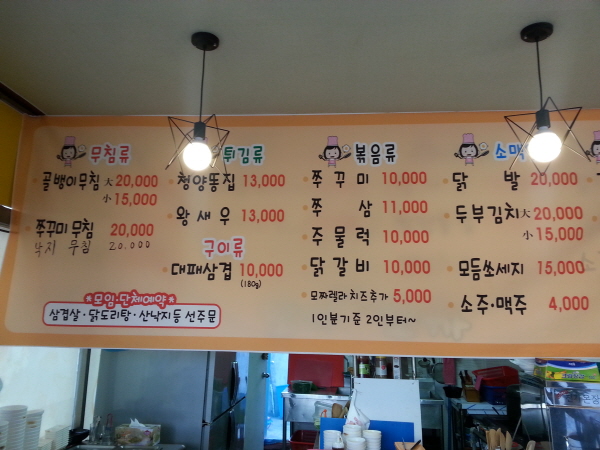 무침류
골뱅이무침 大 20,000
小 15,000
쭈꾸미 무침 20,000
낙지 무침 20.000
*모임·단체예약*
삼겹살·닭도리탕·산낙지등 선주문
튀김류
청양똥집 13,000
왕새우 13,000
구이류
대패삼겹 10,000
(180g)
볶음류
쭈꾸미 10,000
쭈삼 11,000
주물럭 10,000
닭갈비 10,000
모짜렐라 치즈추가 5,000
1인분기준 2인부터~
소맥
닭발 20,000
두부김치 大 20,000
小 15,000
모듬쏘세지 15,000
소주·맥주 4,000